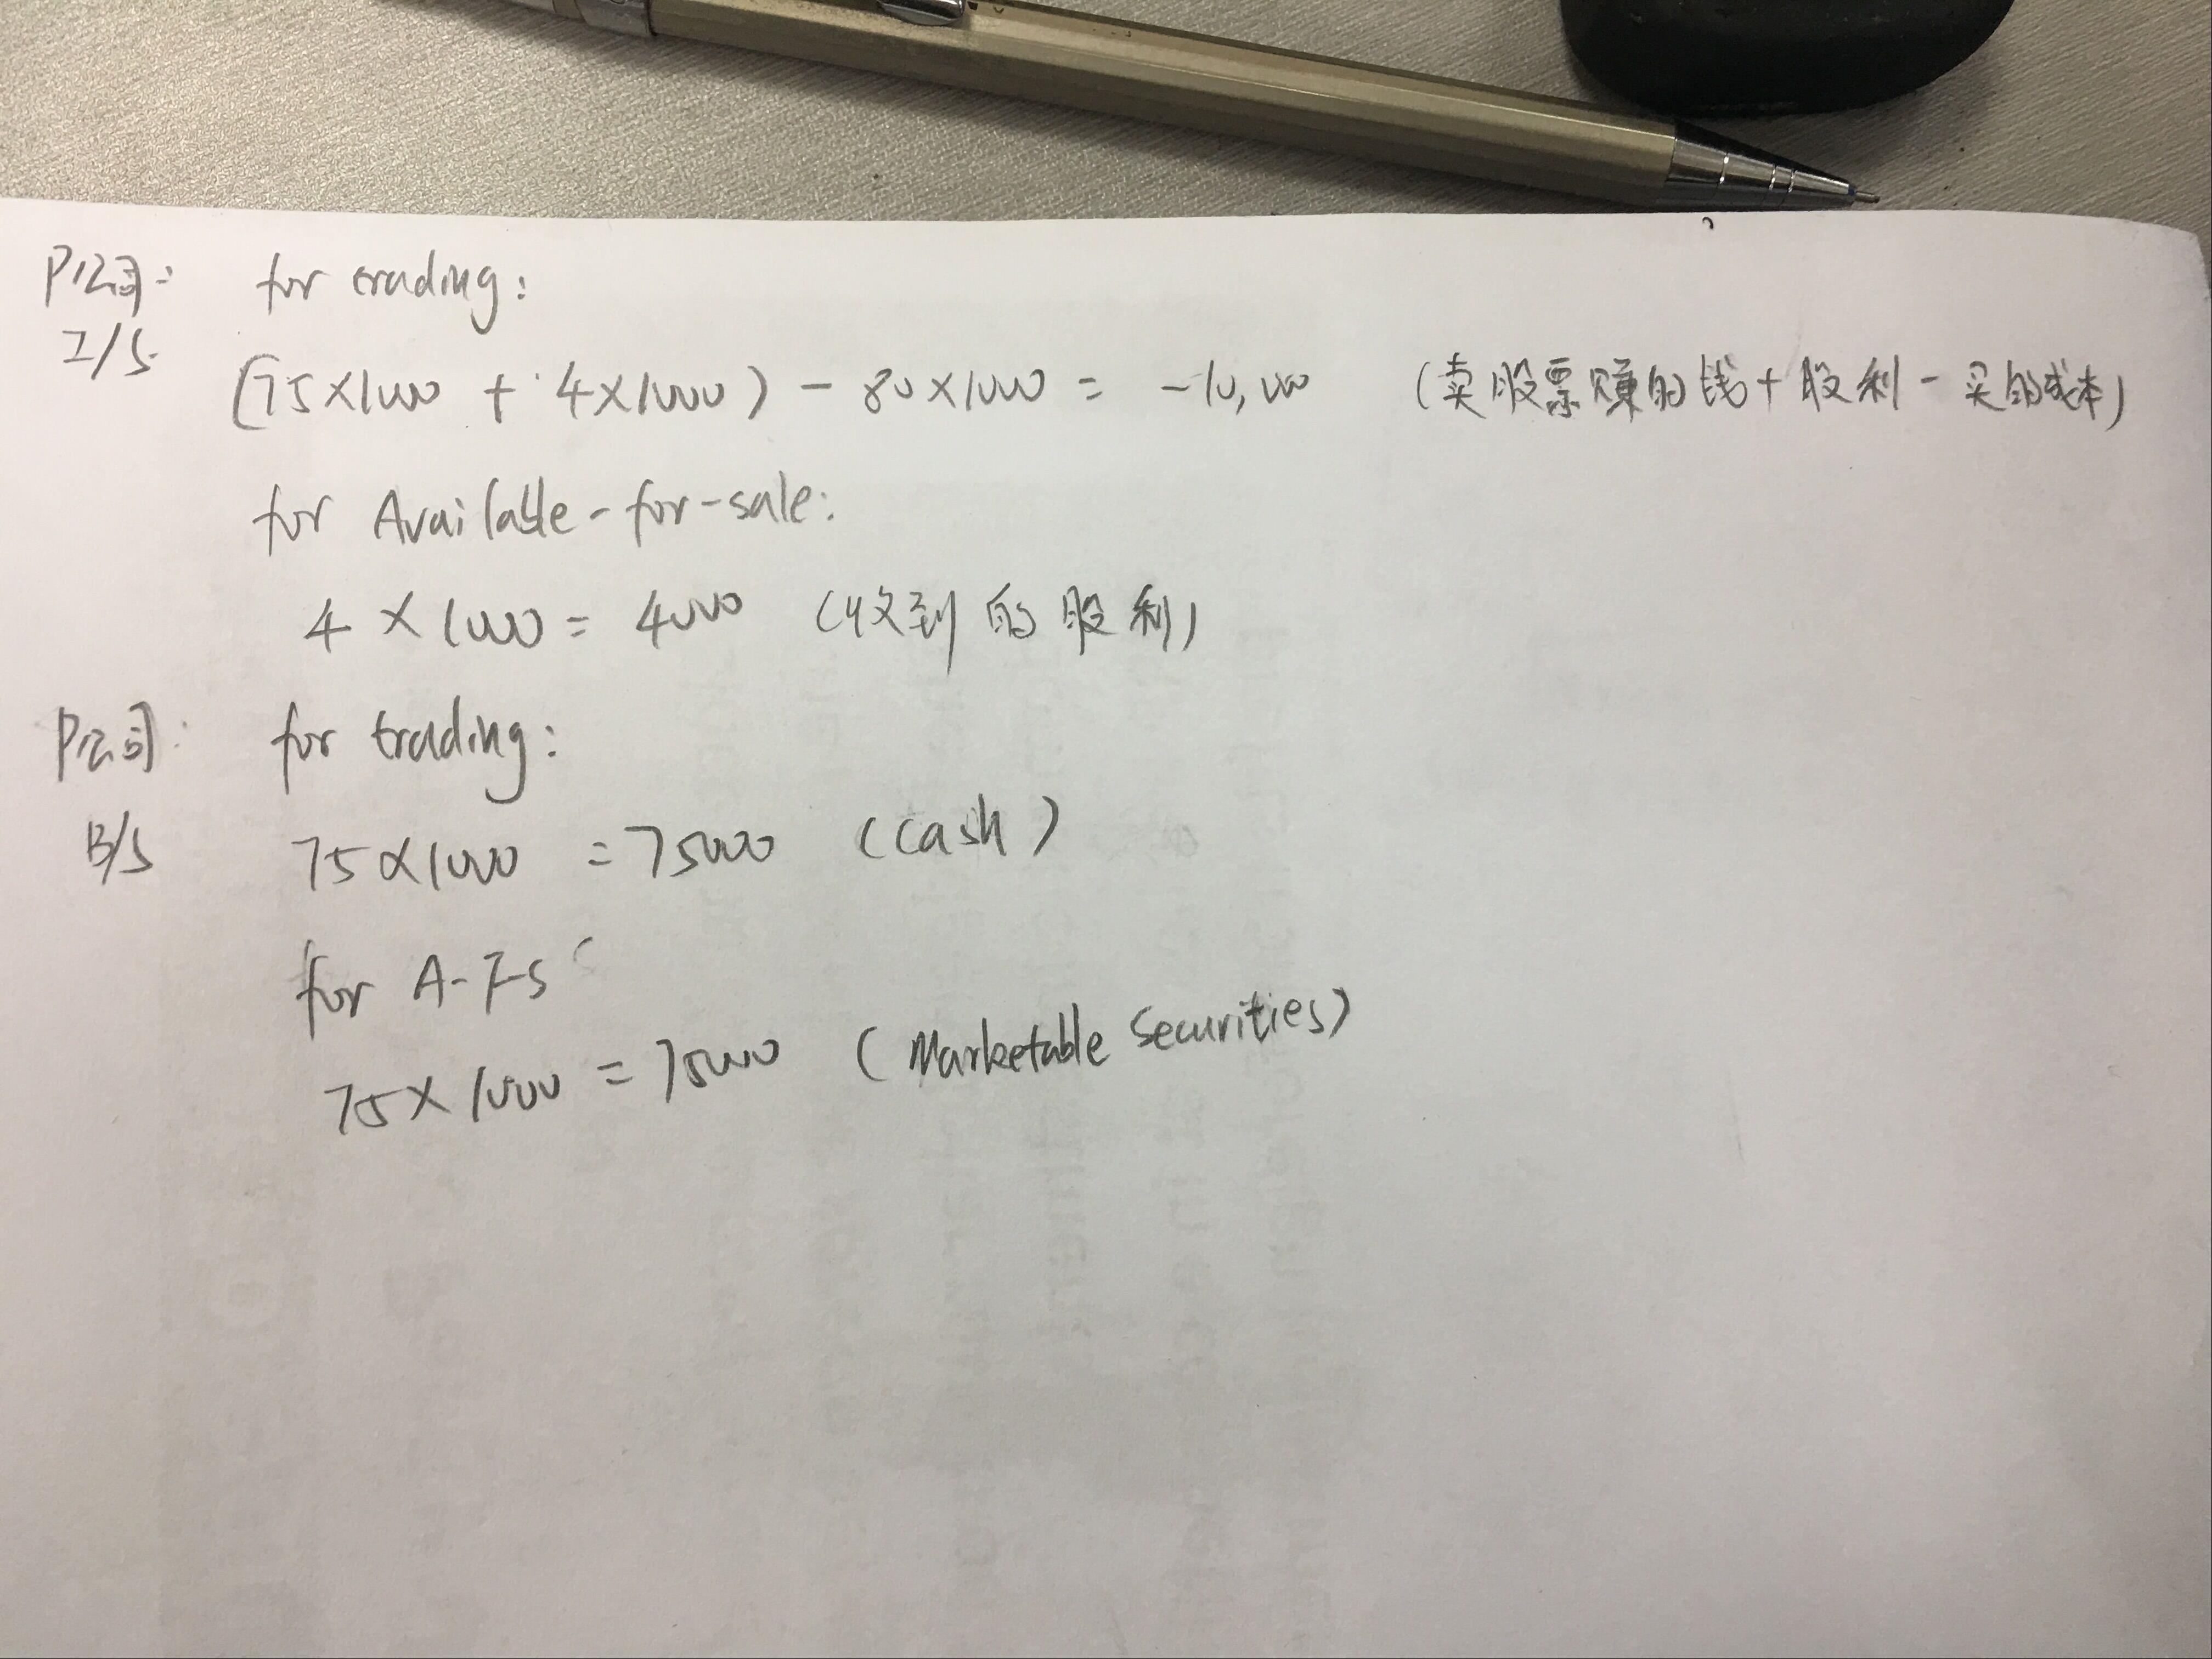 P公司: for trading:
I/S (75×1000 + 4×1000) - 80×1000 = -10,000 (卖股票赚的钱+股利-买的成本)
for Available-for-sale:
4 × 1000 = 4000 (收到的股利)
P公司: for trading:
B/S 75×1000 = 75000 (cash)
for A-F-S
75×1000 = 75000 (Marketable Securities)